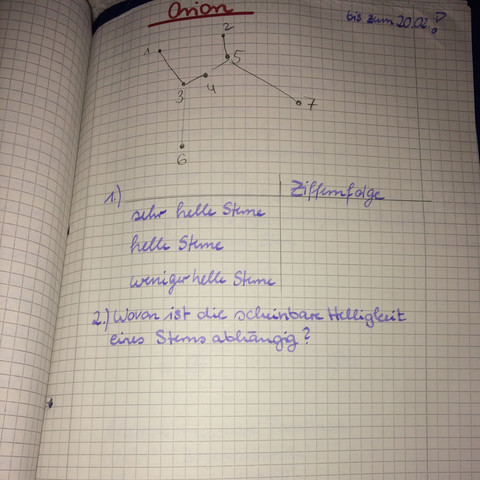 Orion
bis zum 20.02.!
2
1
5
3
4
7
6
1.)
Ziffernfolge
sehr helle Sterne
helle Sterne
weniger helle Sterne
2.) Wovon ist die scheinbare Helligkeit
eines Sterns abhängig?